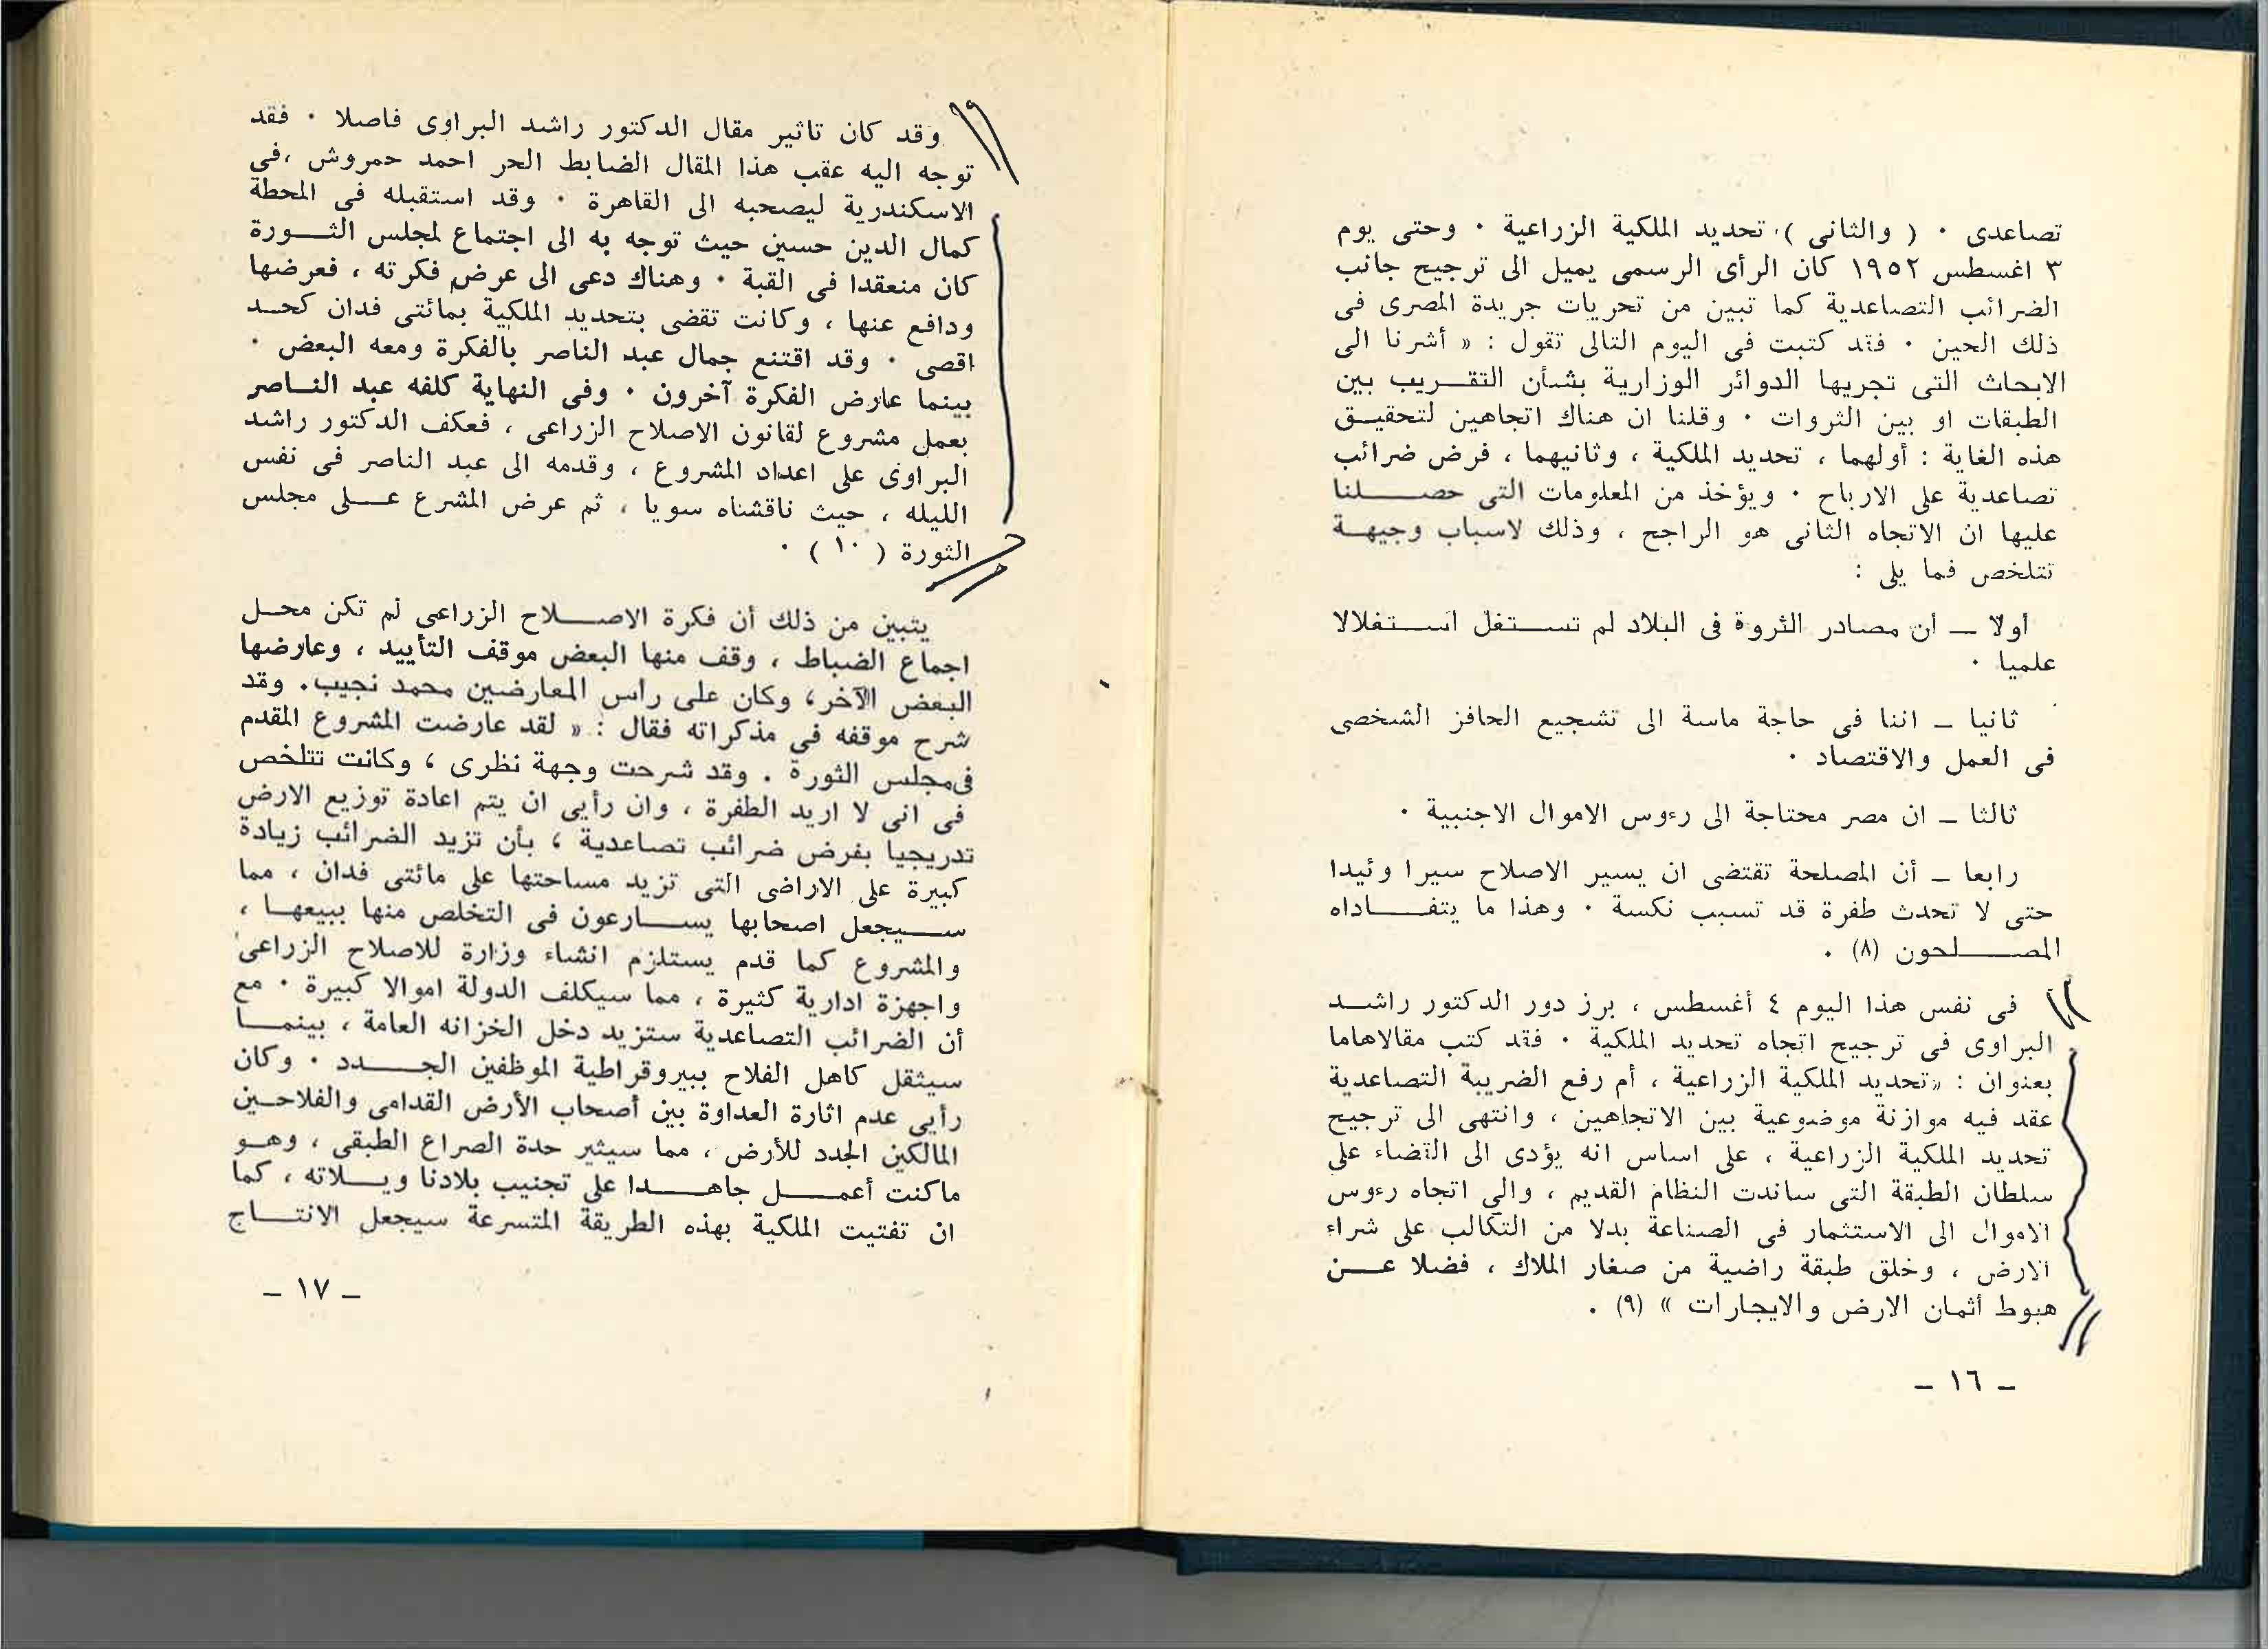 تصاعدى . ( والثانى ) ، تحديد الملكية الزراعية . وحتى يوم
٣ اغسطس ١٩٥٢ كان الرأى الرسمى يميل الى ترجيح جانب
الضرائب التصاعدية كما تبين من تحريات جريدة المصرى فى
ذلك الحين . فقد كتبت فى اليوم التالى تقول : « أشرنا الى
الابحاث التى تجريها الدوائر الوزارية بشأن التقريب بين
الطبقات او بين الثروات . وقلنا ان هناك اتجاهين لتحقيق
هذه الغاية : أولهما ، تحديد الملكية ، وثانيهما ، فرض ضرائب
تصاعدية على الارباح . ويؤخذ من المعلومات التى حصلنا
عليها ان الاتجاه الثانى هو الراجح ، وذلك لاسباب وجيهة
تتلخص فما يلى :
أولا — أن مصادر الثروة فى البلاد لم تستغل استغلالا
علميا .
ثانيا — اننا فى حاجة ماسة الى تشجيع الحافز الشخصى
فى العمل والاقتصاد .
ثالثا — ان مصر محتاجة الى رءوس الاموال الاجنبية .
رابعا — أن المصلحة تقتضى ان يسير الاصلاح سيرا وئيدا
حتى لا تحدث طفرة قد تسبب نكسة . وهذا ما يتفاداه
المصلحون (٨) .
فى نفس هذا اليوم ٤ أغسطس ، برز دور الدكتور راشد
البراوى فى ترجيح اتجاه تحديد الملكية . فقد كتب مقالاهاما
بعنوان : «تحديد الملكية الزراعية ، أم رفع الضريبة التصاعدية
عقد فيه موازنة موضوعية بين الاتجاهين ، وانتهى الى ترجيح
تحديد الملكية الزراعية ، على اساس انه يؤدى الى القضاء على
سلطان الطبقة التى ساندت النظام القديم ، والى اتجاه رءوس
الاموال الى الاستثمار فى الصناعة بدلا من التكالب على شراء
الارض ، وخلق طبقة راضية من صغار الملاك ، فضلا عن
هبوط أثمان الارض والايجارات » (٩) .
— ١٦ —
وقد كان تاثير مقال الدكتور راشد البراوى فاصلا . فقد
توجه اليه عقب هذا المقال الضابط الحر احمد حمروش ،فى
الاسكندرية ليصحبه الى القاهرة . وقد استقبله فى المحطة
كمال الدين حسين حيث توجه به الى اجتماع لمجلس الثورة
كان منعقدا فى القبة . وهناك دعى الى عرض فكرته ، فعرضها
ودافع عنها ، وكانت تقضى بتحديد الملكية بمائتى فدان كحد
اقصى . وقد اقتنع جمال عبد الناصر بالفكرة ومعه البعض .
بينما عارض الفكرة آخرون . وفى النهاية كلفه عبد الناصر
بعمل مشروع لقانون الاصلاح الزراعى ، فعكف الدكتور راشد
البراوى على اعداد المشروع ، وقدمه الى عبد الناصر فى نفس
الليله ، حيث ناقشناه سويا ، ثم عرض المشرع على مجلس
الثورة ( ١٠ ) .
يتبين من ذلك أن فكرة الاصلاح الزراعى لم تكن محل
اجماع الضباط ، وقف منها البعض موقف التأييد ، وعارضها
البعض الآخر، وكان على راس المعارضين محمد نجيب. وقد
شرح موقفه فى مذكراته فقال : « لقد عارضت المشروع المقدم
فى مجلس الثورة . وقد شرحت وجهة نظرى ، وكانت تتلخص
فى انى لا اريد الطفرة ، وان رأيى ان يتم اعادة توزيع الارض
تدريجيا بفرض ضرائب تصاعدية ، بأن تزيد الضرائب زيادة
كبيرة على الاراضى التى تزيد مساحتها على مائتى فدان ، مما
سيجعل اصحابها يسارعون فى التخلص منها ببيعها ،
والمشروع كما قدم يستلزم انشاء وزارة للاصلاح الزراعى
واجهزة ادارية كثيرة ، مما سيكلف الدولة اموالا كبيرة . مع
أن الضرائب التصاعدية ستزيد دخل الخزانه العامة ، بينما
سيثقل كاهل الفلاح ببيروقراطية الموظفين الجدد . وكان
رأيى عدم اثارة العداوة بين أصحاب الأرض القدامى والفلاحين
المالكين الجدد للأرض ، مما سيثير حدة الصراع الطبقى ، وهو
ماكنت أعمل جاهدا على تجنيب بلادنا ويلاته ، كما
ان تفتيت الملكية بهذه الطريقة المتسرعة سيجعل الانتاج
— ١٧ —